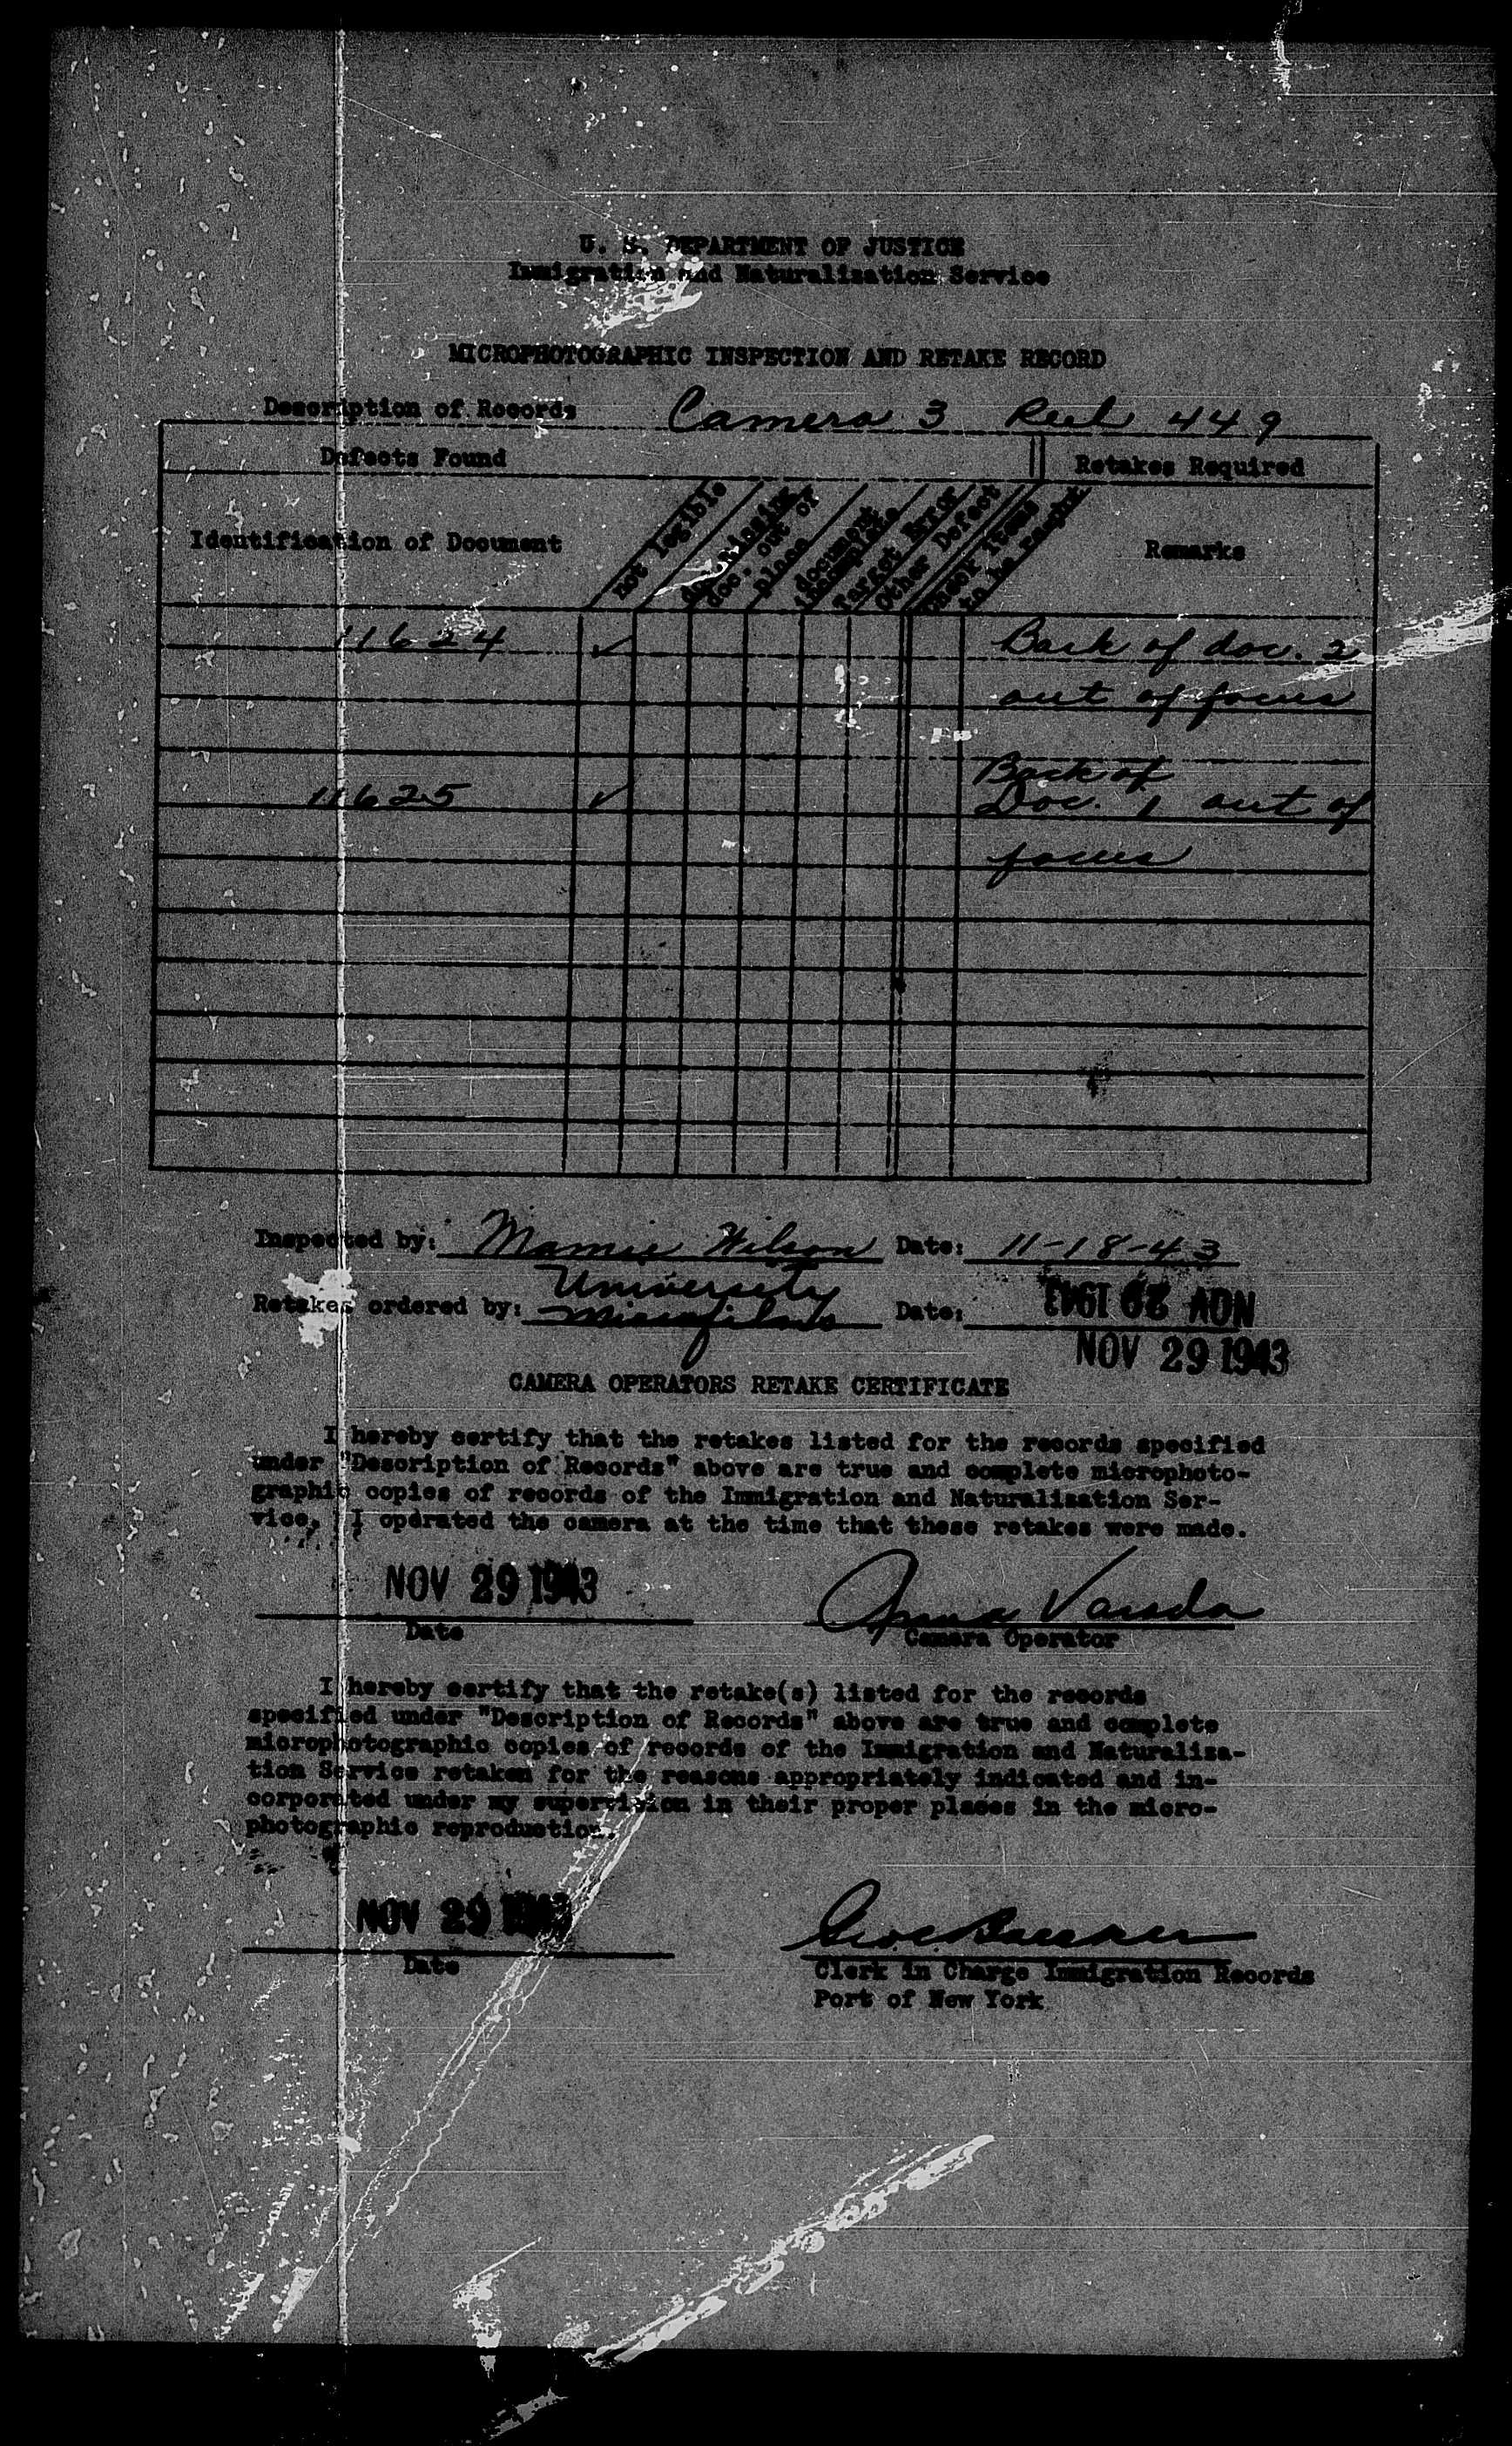 U. S. DEPARTMENT OF JUSTICE
Immigration and Naturalization Service
MICROPHOTOGRAPHIC INSPECTION AND RETAKE RECORD
Description of Records Camera 3 Reel 449
Defects Found Retakes Required
Identification of Document not legible doc. missing doc. out of place document incomplete Target Error Other Defect Check items to be Remarks
11624 ✓ Back of doc. 2
out of focus
Back of
11625 ✓ Doc. 1 out of
focus
Inspected by: Mamie Wilson Date: 11-18-43
University
Retakes ordered by: Microfilms Date: NOV 29 1943
NOV 29 1943
CAMERA OPERATORS RETAKE CERTIFICATE
I hereby certify that the retakes listed for the records specified
under "Description of Records" above are true and complete microphoto-
graphic copies of records of the Immigration and Naturalization Ser-
vice. I operated the camera at the time that these retakes were made.
NOV 29 1943 Anna
Date Camera Operator
I hereby certify that the retake(s) listed for the records
specified under "Description of Records" above are true and complete
microphotographic copies of records of the Immigration and Naturaliza-
tion Service retaken for the reasons appropriately indicated and in-
corporated under my supervision in their proper places in the micro-
photographic reproduction.
NOV 29 1943
Date Clerk in Charge Immigration Records
Port of New York